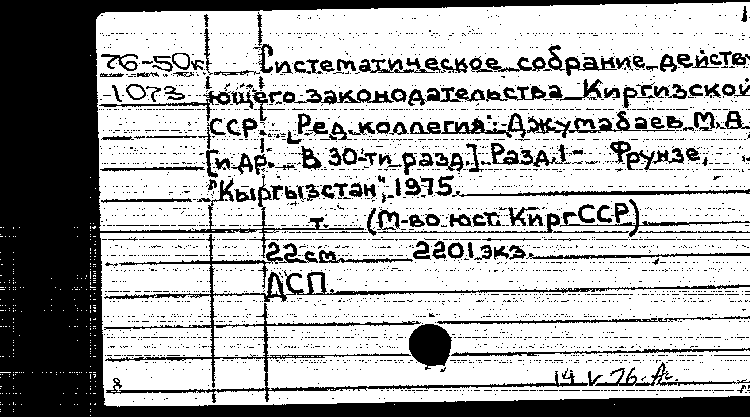 76-50к Систематическое собрание действу
1073 ющего законодательства Киргизской
ССР. [Ред. коллегия: Джумабаев М.А.
[и др. В 30-ти разд.]. Разд.1- Фрунзе,
"Кыргызстан", 1975.
т. (М-во юст. КиргССР).
22 см. 2201 экз.
ДСП.
14 V 76.
8